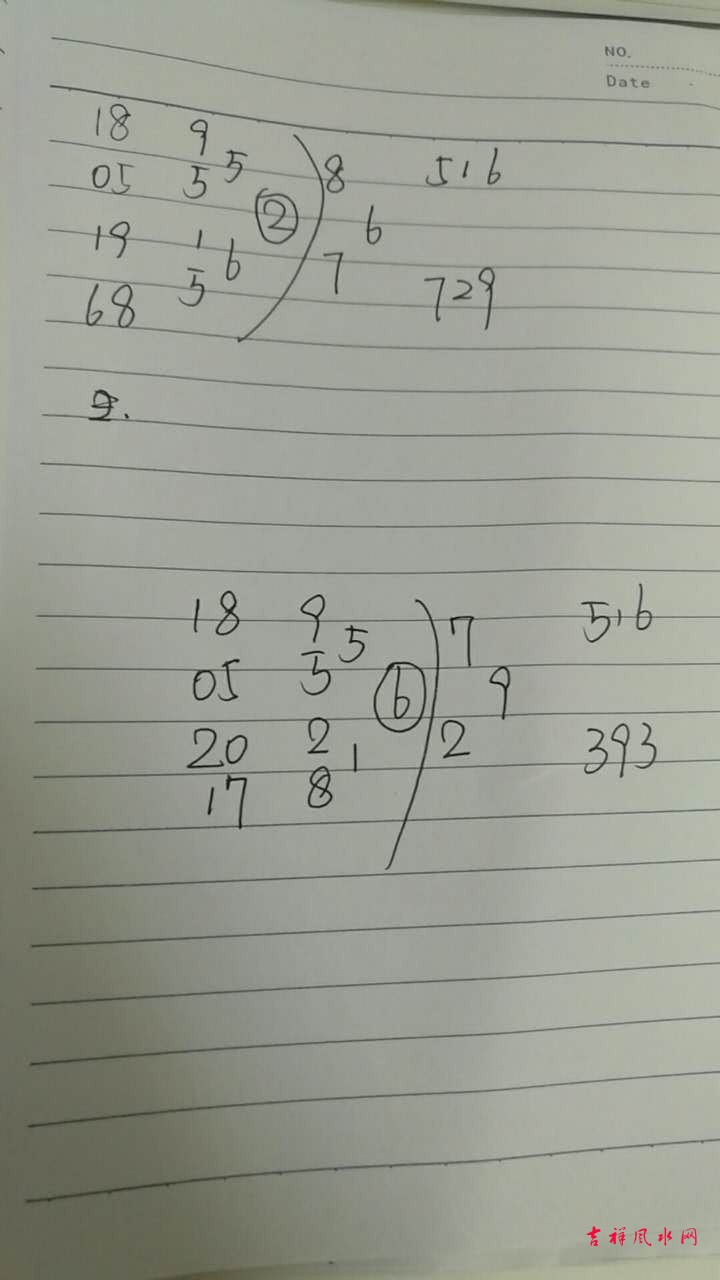 NO.
Date
18 9 5 8 5 1 6
05 5
2 6
19 1 6 7 729
68 5
18 9 5 7 5 1 6
05 5 6 9
20 2 1 2 393
17 8
吉祥风水网